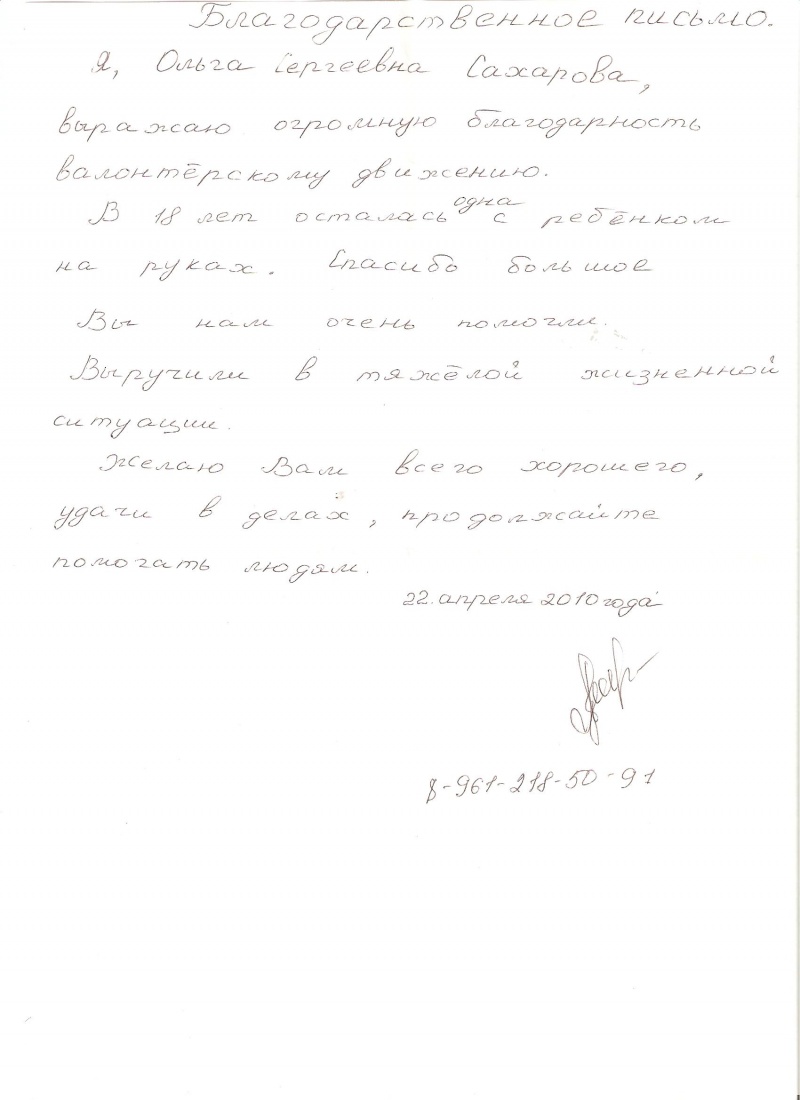 Благодарственное письмо.
Я, Ольга Сергеевна Сахарова,
выражаю огромную благодарность
валонтёрскому движению.
В 18 лет осталась одна с ребёнком
на руках. Спасибо большое
Вы нам очень помогли.
Выручили в тяжёлой жизненной
ситуации.
Желаю Вам всего хорошего,
удачи в делах, продолжайте
помогать людям.
22. апреля 2010 года
8-961-218-50-91